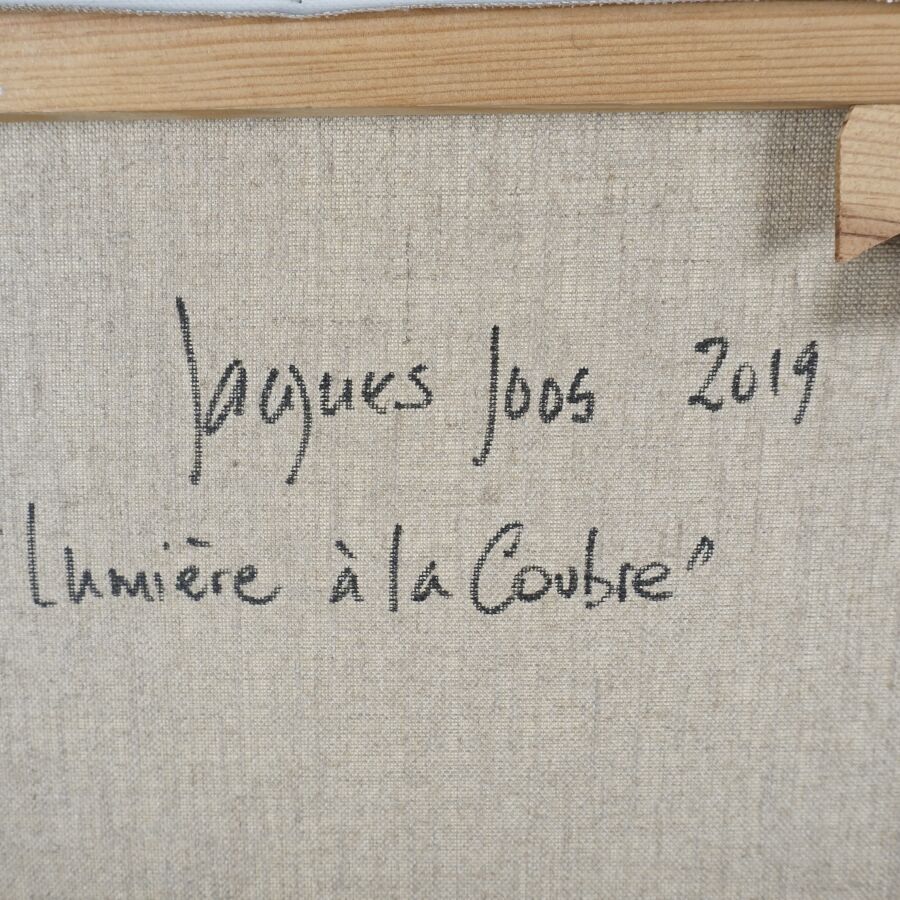 Jacques Joos 2019
"Lumière à la Coubre"